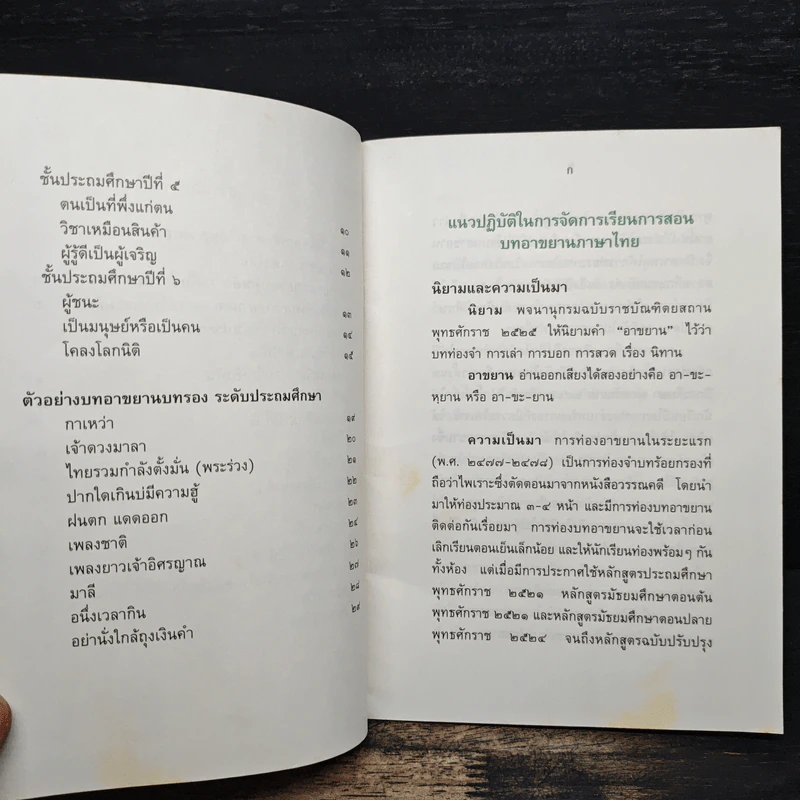 ชั้นประถมศึกษาปีที่ ๕
ตนเป็นที่พึ่งแก่ตน
วิชาเหมือนสินค้า ๑๐
ผู้รู้ดีเป็นผู้เจริญ ๑๑
ชั้นประถมศึกษาปีที่ ๖ ๑๒
ผู้ชนะ
เป็นมนุษย์หรือเป็นคน ๑๓
โคลงโลกนิติ ๑๔
๑๕
ตัวอย่างบทอาขยานบทรอง ระดับประถมศึกษา
กาเหว่า ๑๙
เจ้าดวงมาลา ๒๐
ไทยรวมกำลังตั้งมั่น (พระร่วง) ๒๑
ปากใดเกินบ่มีความฮู้ ๒๒
ฝนตก แดดออก ๒๓
เพลงชาติ ๒๔
เพลงยาวเจ้าอิศรญาณ ๒๖
มาลี ๒๗
อนึ่งเวลากิน ๒๘
อย่านั่งใกล้ถุงเงินคำ ๒๙
ก
แนวปฏิบัติในการจัดการเรียนการสอน
บทอาขยานภาษาไทย
นิยามและความเป็นมา
นิยาม พจนานุกรมฉบับราชบัณฑิตยสถาน
พุทธศักราช ๒๕๒๕ ให้นิยามคำ “อาขยาน” ไว้ว่า
บทท่องจำ การเล่า การบอก การสวด เรื่อง นิทาน
อาขยาน อ่านออกเสียงได้สองอย่างคือ อา-ขะ-
หฺยาน หรือ อา-ขะ-ยาน
ความเป็นมา การท่องอาขยานในระยะแรก
(พ.ศ. ๒๔๗๗-๒๔๗๘) เป็นการท่องจำบทร้อยกรองที่
ถือว่าไพเราะซึ่งตัดตอนมาจากหนังสือวรรณคดี โดยนำ
มาให้ท่องประมาณ ๓-๔ หน้า และมีการท่องบทอาขยาน
ติดต่อกันเรื่อยมา การท่องบทอาขยานจะใช้เวลาก่อน
เลิกเรียนตอนเย็นเล็กน้อย และให้นักเรียนท่องพร้อมๆ กัน
ทั้งห้อง แต่เมื่อมีการประกาศใช้หลักสูตรประถมศึกษา
พุทธศักราช ๒๕๒๑ หลักสูตรมัธยมศึกษาตอนต้น
พุทธศักราช ๒๕๒๑ และหลักสูตรมัธยมศึกษาตอนปลาย
พุทธศักราช ๒๕๒๔ จนถึงหลักสูตรฉบับปรับปรุง